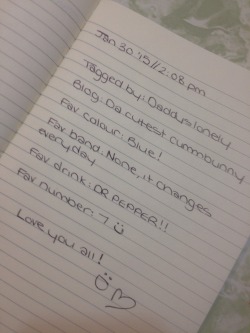 Jan 30 '15 // 2:08 pm
Tagged by: Daddyslonely
Blog: Da cutest cummbunny
Fav colour: Blue!
Fav band: None, it changes
everyday
Fav drink: DR PEPPER!!
Fav number: 7 ü
Love you all!